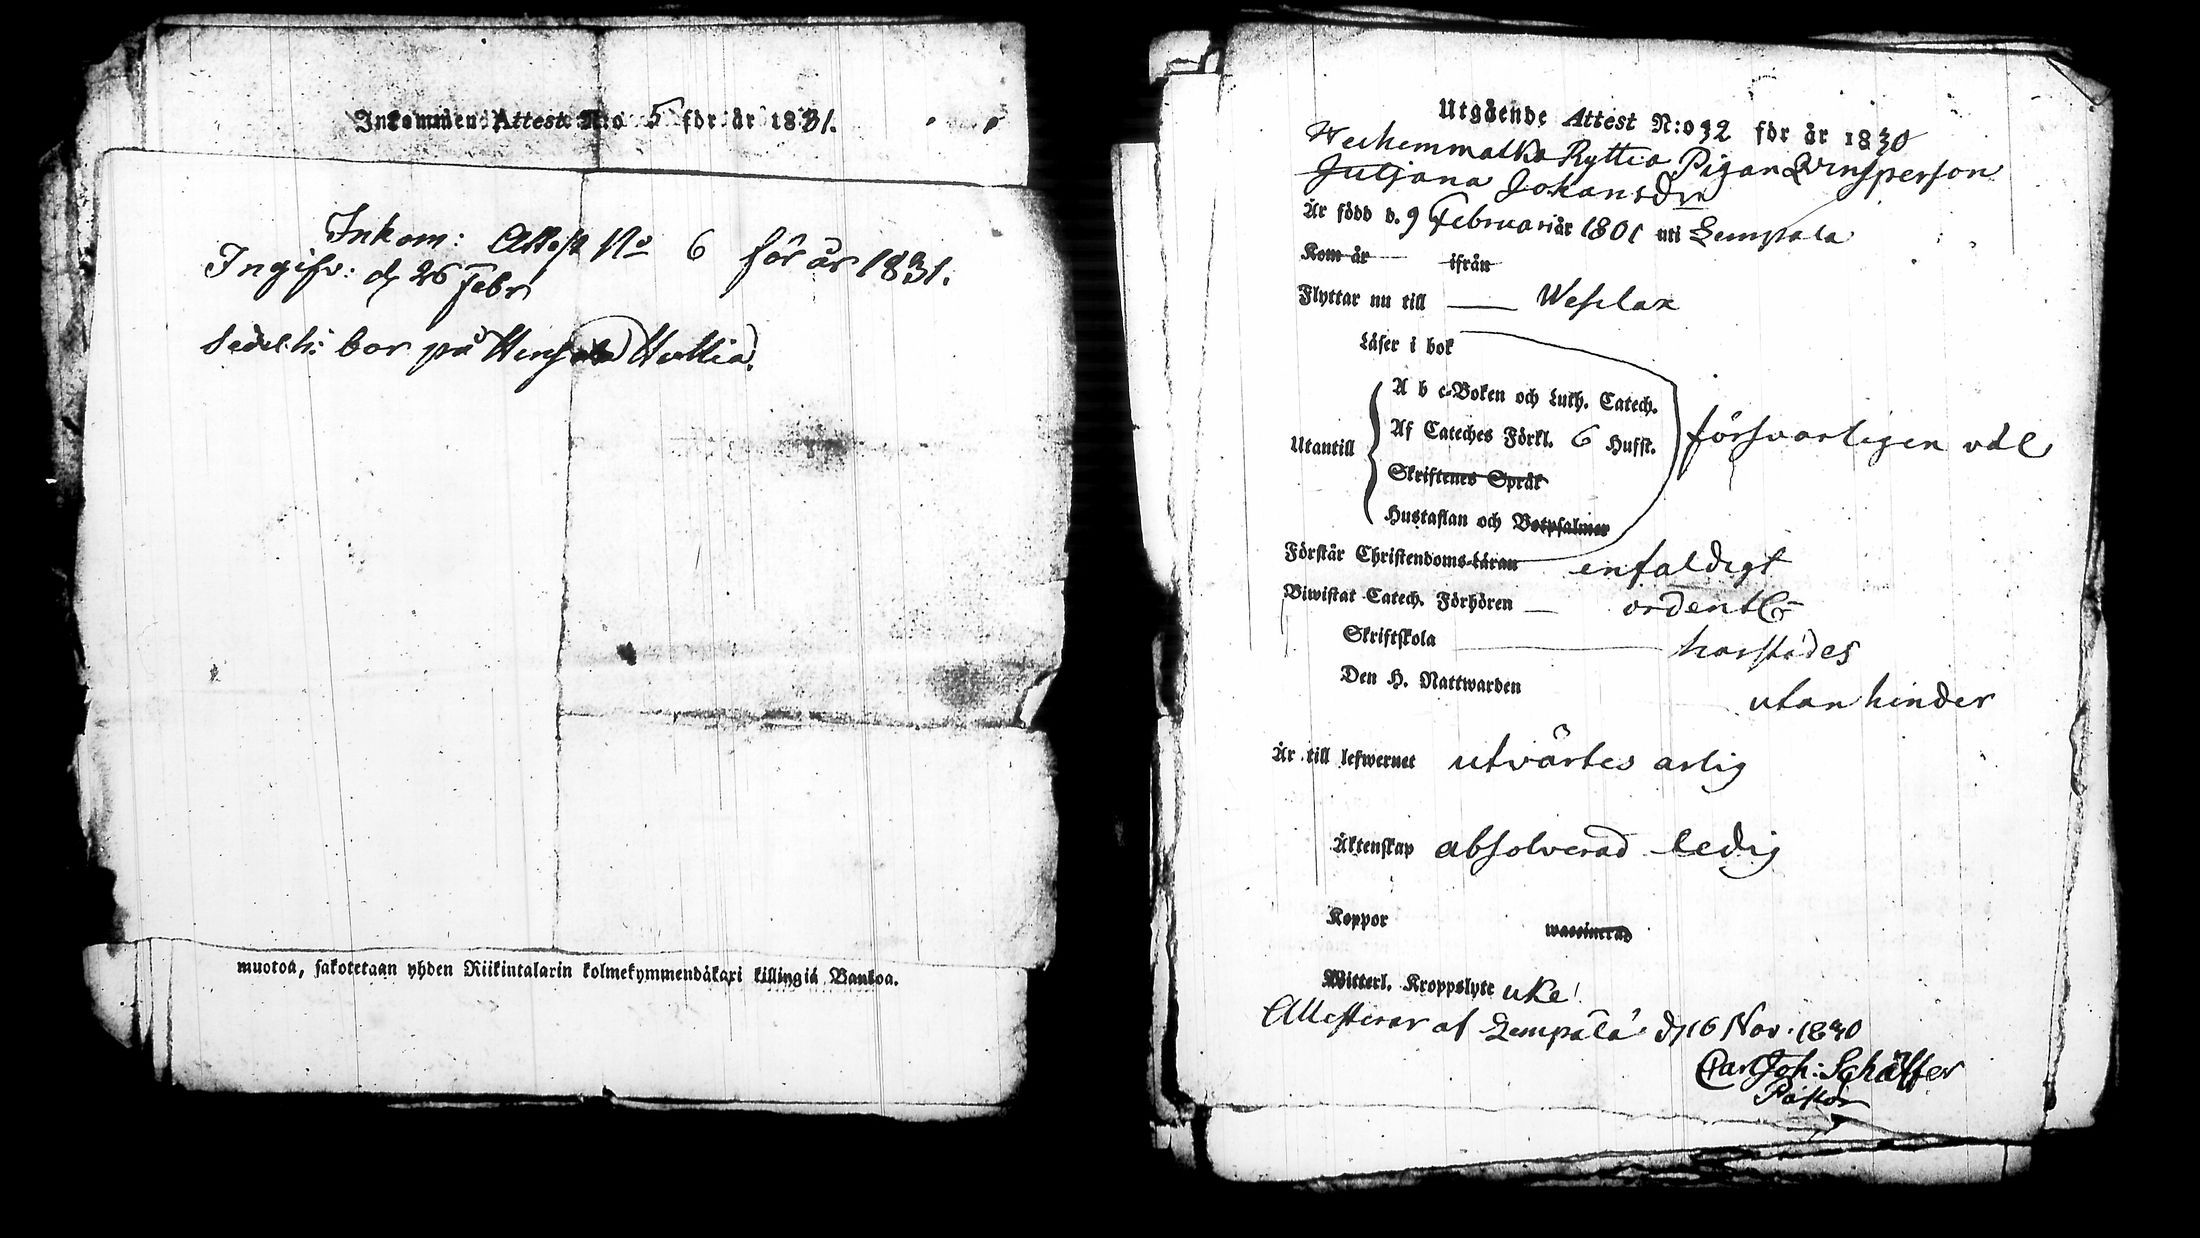 Inkommen Attest N:o 5 för år 1831.
Inkom: Attest No 6 för år 1831.
Ingifv: d 26 Febr
Sedelh: bor på Huttia.
muotoa, sakotetaan yhden Riikintalarin kolmekymmendäkaxi killingiä Bankoa.
Utgående Attest N:o 32 för år 1830
Pigan Qvinsperson
Juljana Johansdr
Är född d. 9 Februari år 1801 uti Lempälä
Kom år ifrån
Flyttar nu till Wesilax
Läser i bok
A b c-Boken och Luth. Catech.
Utantill Af Cateches Förkl. 6 Hufst. försvarligen väl
Skriftenes Språk
Hustaflan och Botpsalmer
Förstår Christendoms-Läran enfaldigt
Biwistat Catech. Förhören ordentl
Skriftskola harstädes
Den H. Nattwarden utan hinder
Är till lefwernet utvärtes ärlig
Äktenskap absolverad ledig
Koppor waccinerad
Witterl. Kroppslyte
Attesterar af Lempälä d 16 Nov. 1830
Carl Joh: Schäffer
Pastor